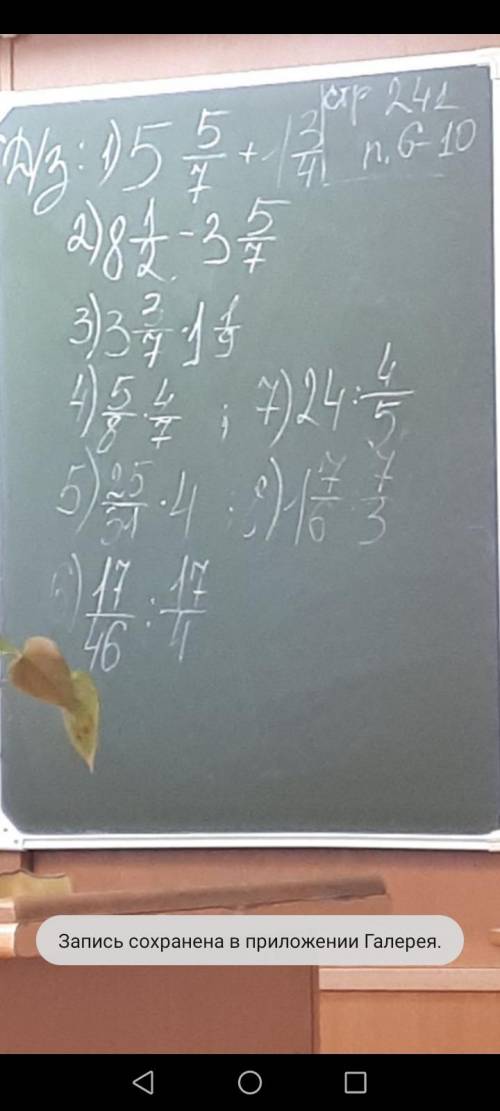 Д/з: 1) 5 5/7 + 1 3/4 стр 241
п. 6-10
2) 8 1/2 - 3 5/7
3) 3 3/7 · 1 1/9
4) 5/8 · 4/7 ; 7) 24 : 4/5
5) 25/51 · 4 ; 8) 1 7/6 : 7/3
17/46 : 17/4
Запись сохранена в приложении Галерея.